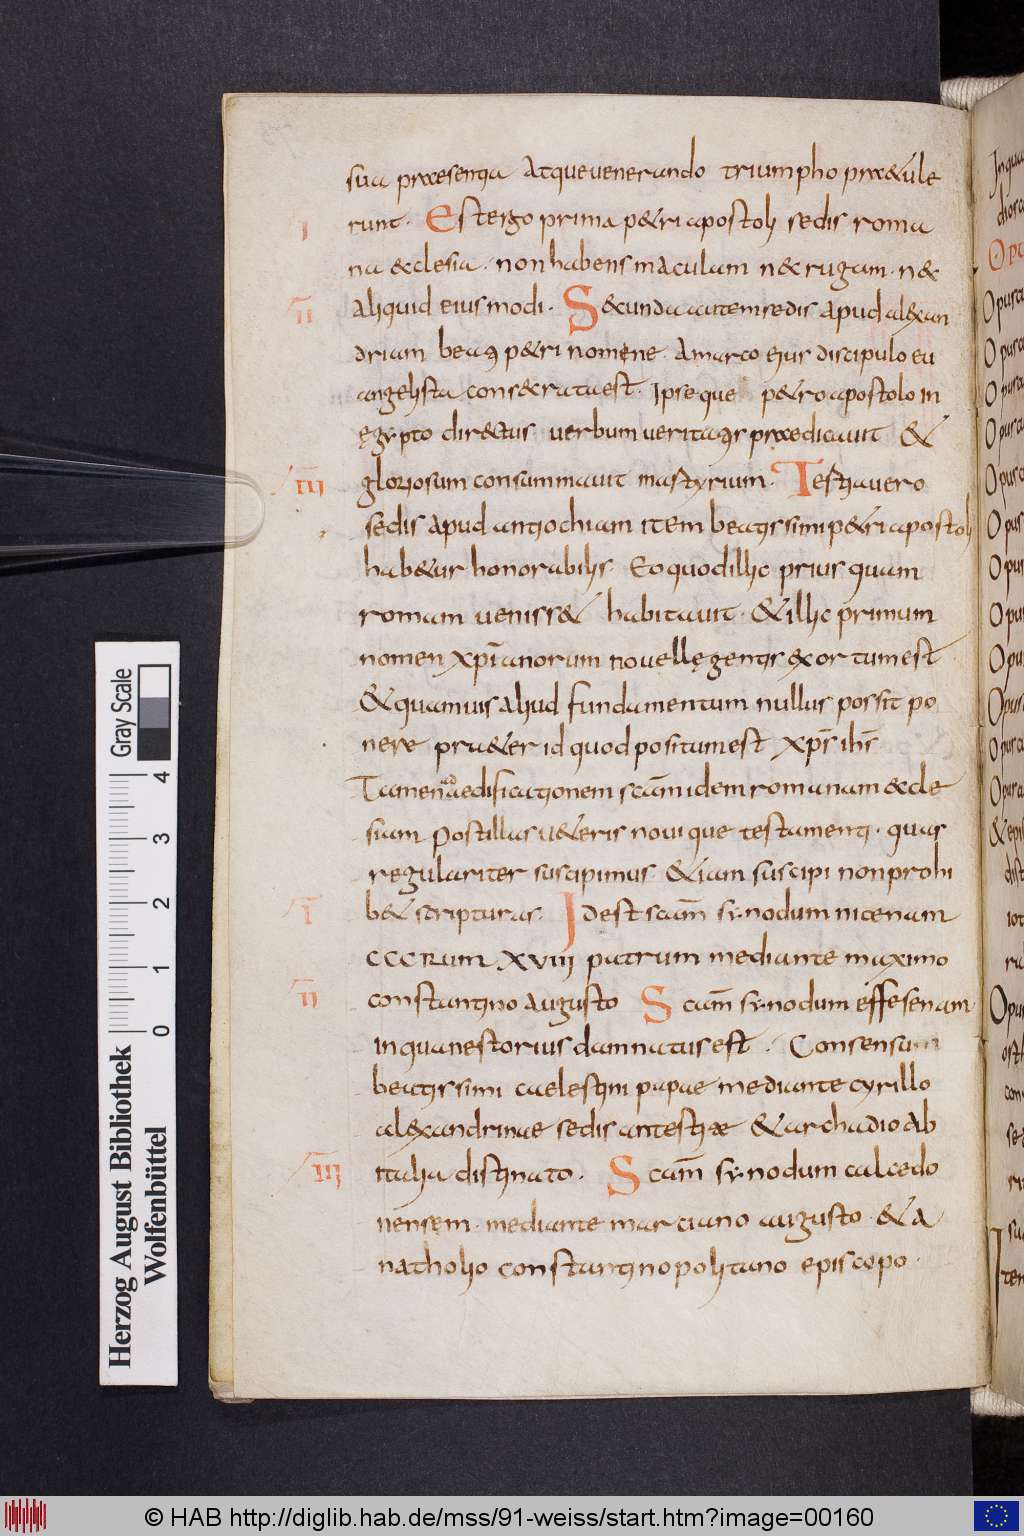 sua praesentia Atque uenerando triumpho praetule
I runt. Est ergo prima petri apostoli sedis roma
na ecclesia. non habens maculam nec rugam. nec
II aliquid eiusmodi. Secunda autem sedis apud alexan
driam beati petri nomine. A marco eius discipulo eu
angelista consecrata est. Ipse que petro apostolo in
egypto directus uerbum ueritatis praedicauit &
III gloriosum consummauit martyrium. Tertia uero
sedis apud antiochiam item beatissimi petri apostoli
habetur honorabilis. Eo quod illic prius quam
romam uenisset habitauit. & illic primum
nomen xp̄ianorum nouellę gentis exortum est
& quamuis aliud fundamentum nullus possit po
nere praeter id quod positum est xp̄s ih̄s
Tamen ad aedificationem scām idem romanam eccle
siam post illas ueteris noui que testamenti. quas
regulariter suscipimus etiam suscipi non prohi
I bet scripturas. Id est scām synodum nicenam
CCCRum XVIII patrum mediante maximo
II constantino augusto Scām synodum effesenam
in qua nestorius damnatus est. Consensum
beatissimi caelestini papae mediante cyrillo
alexandrinae sedis antestitae & archadio Ab
III italia distinato. Scām synodum calcedo
nensem. mediante marciano augusto. & A
natholio constantinopolitano episcopo.
Opus
Opus
Opus
Opus
Herzog August Bibliothek
Wolfenbüttel
0 1 2 3 4
Gray Scale
© HAB http://diglib.hab.de/mss/91-weiss/start.htm?image=00160